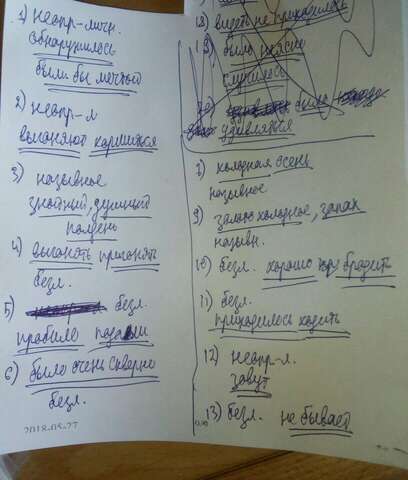 1) неопр-личн.
обнаружилось
были бы мечтой
2) неопр-л
выгоняют кормиться
3) назывное
знойный, душный
полдень
4) выгонять пригонять
безл.
5) безл.
пробило
6) было очень скверно
безл.
2018-05-27
18) не приходилось
было неясно
случилось
было
удивляться
холодная осень
назывное
9) холодное, запах
назывн.
10) безл. хорошо бродить
11) безл.
приходилось ходить
12) неопр-л.
зовут
13) безл. не бывает